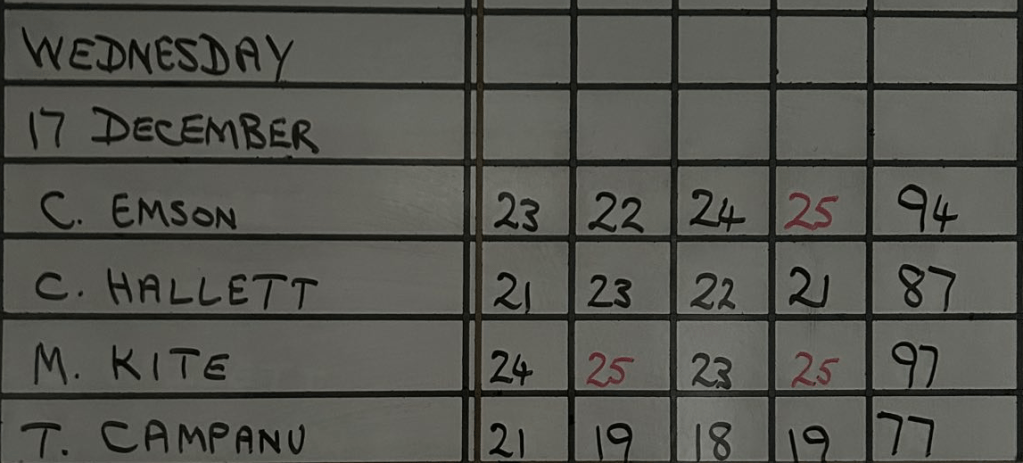 WEDNESDAY
17 DECEMBER
C. EMSON 23 22 24 25 94
C. HALLETT 21 23 22 21 87
M. KITE 24 25 23 25 97
T. CAMPANU 21 19 18 19 77